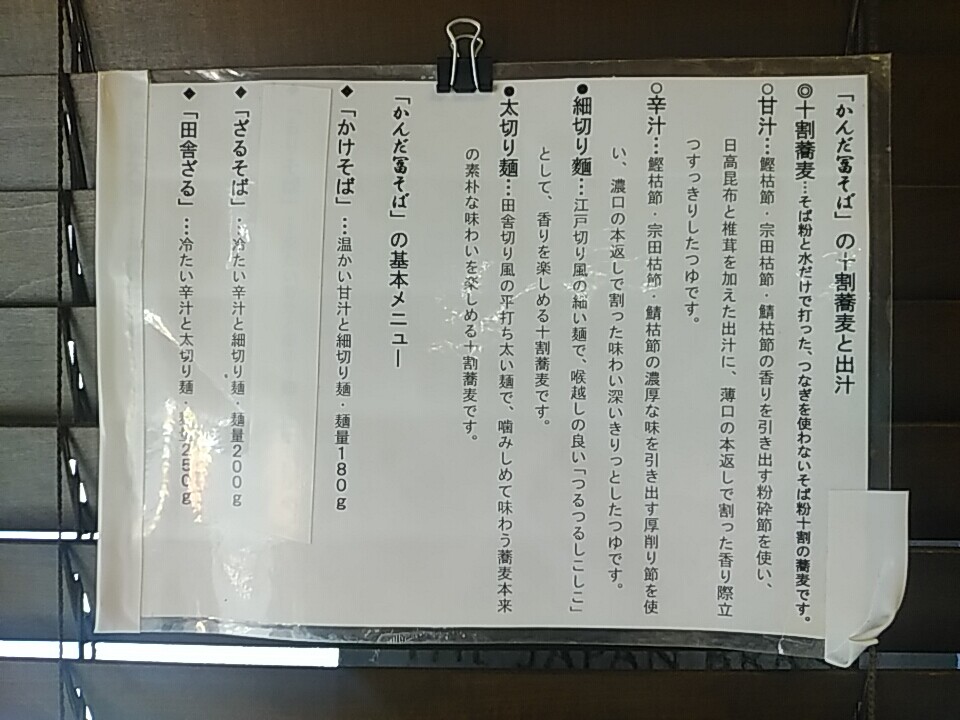 「かんだ冨そば」の十割蕎麦と出汁
◎十割蕎麦…そば粉と水だけで打った、つなぎを使わないそば粉十割の蕎麦です。
○甘汁…鰹枯節・宗田枯節・鯖枯節の香りを引き出す粉砕節を使い、
日高昆布と椎茸を加えた出汁に、薄口の本返しで割った香り際立
つすっきりしたつゆです。
○辛汁…鰹枯節・宗田枯節・鯖枯節の濃厚な味を引き出す厚削り節を使
い、濃口の本返しで割った味わい深いきりっとしたつゆです。
●細切り麺…江戸切り風の細い麺で、喉越しの良い「つるつるしこしこ」
として、香りを楽しめる十割蕎麦です。
●太切り麺…田舎切り風の平打ち太い麺で、噛みしめて味わう蕎麦本来
の素朴な味わいを楽しめる十割蕎麦です。
「かんだ冨そば」の基本メニュー
◆「かけそば」…温かい甘汁と細切り麺・麺量180g
◆「ざるそば」…冷たい辛汁と細切り麺・麺量200g
◆「田舎ざる」…冷たい辛汁と太切り麺・250g
THE JAPAN